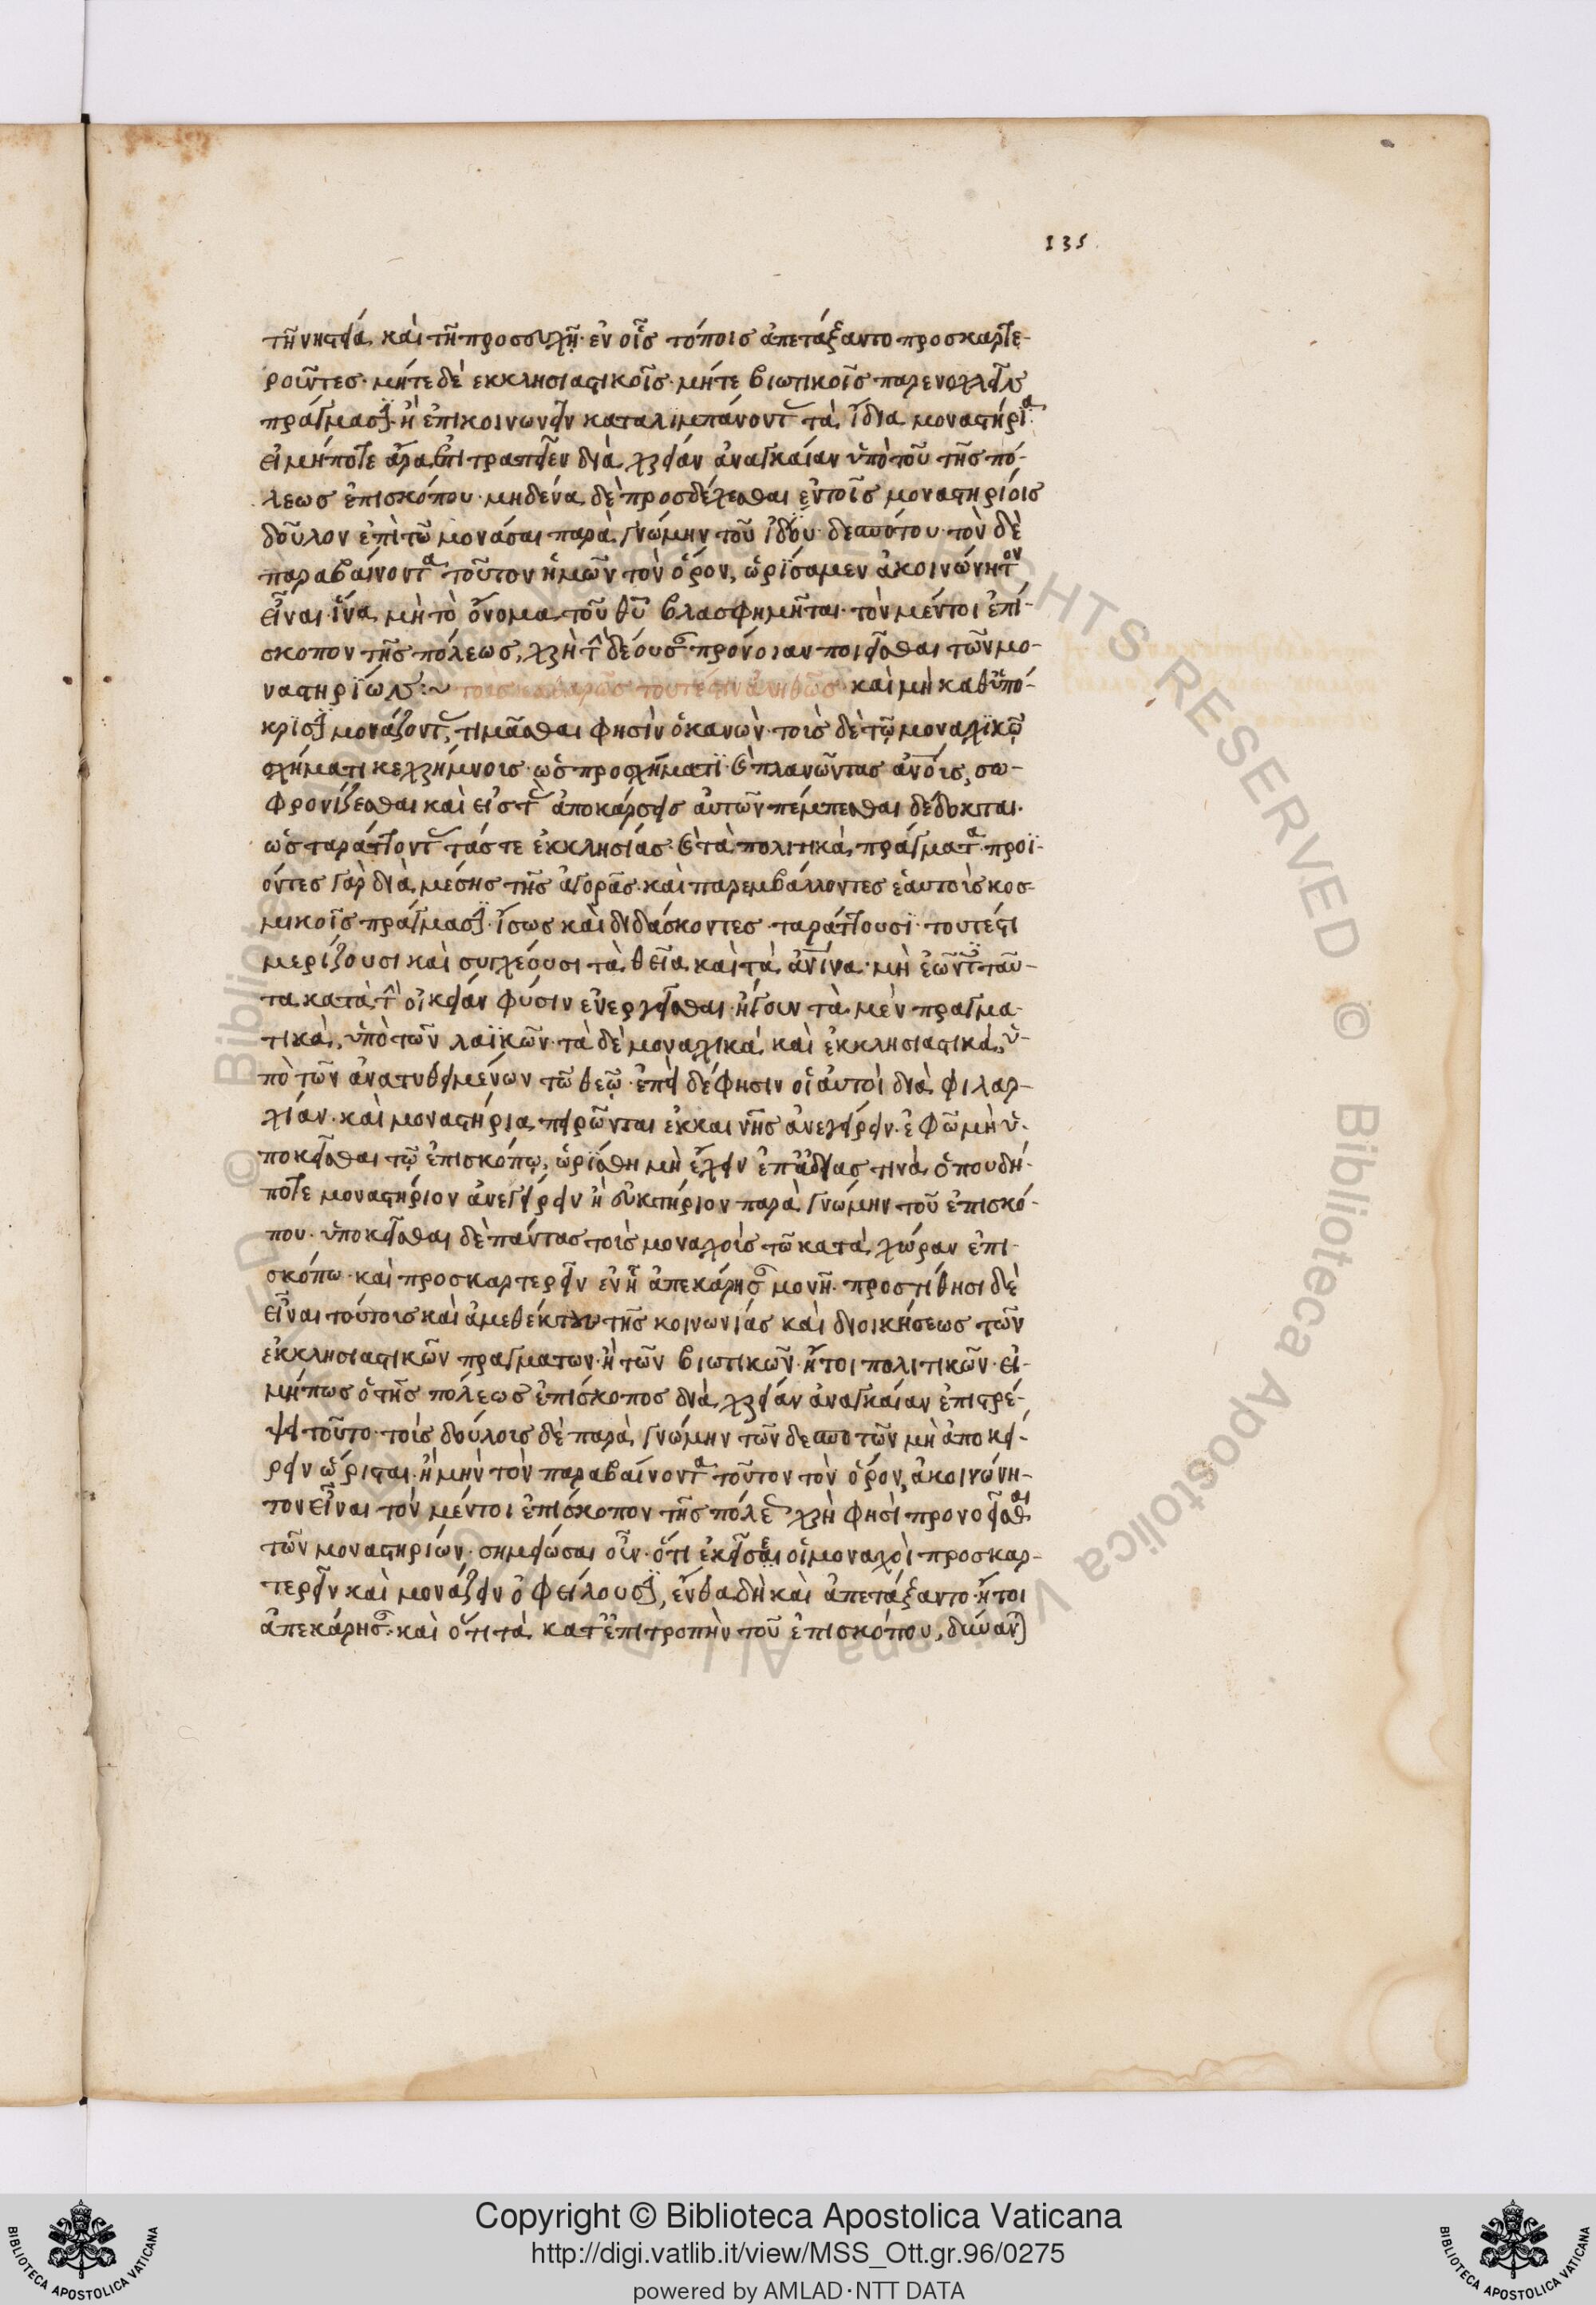 135
τῆ νηστεία καὶ τῆ προσευχῆ· ἐν οἷς τόποις ἀπετάξαντο προσκαρτε-
ροῦντες· μήτε δὲ ἐκκλησιαστικοῖς· μήτε βιωτικοῖς παρενοχλεῖν
πράγμασιν· ἢ ἐπικοινωνεῖν καταλιμπάνοντας τὰ ἴδια μοναστήρια·
εἰ μήποτε ἄρα ἐπιτραπεῖεν διὰ χρείαν ἀναγκαίαν ὑπὸ τοῦ τῆς πό-
λεως ἐπισκόπου· μηδένα δὲ προσδέχεσθαι ἐν τοῖς μοναστηρίοις
δοῦλον ἐπὶ τῶ μονάσαι παρὰ γνώμην τοῦ ἰδίου δεσπότου· τὸν δὲ
παραβαίνοντα τοῦτον ἡμῶν τὸν ὅρον, ὡρίσαμεν ἀκοινώνητον
εἶναι· ἵνα μὴ τὸ ὄνομα τοῦ θῦ βλασφημῆται· τὸν μέντοι ἐπί-
σκοπον τῆς πόλεως, χρὴ τὴν δέουσαν πρόνοιαν ποιεῖσθαι τῶν μο-
ναστηρίων:~ τοὺς καθαρῶς τουτέστιν ἀληθῶς καὶ μὴ καθ' ὑπό-
κρισιν μονάζοντας, τιμᾶσθαι φησὶν ὁ κανών· τοὺς δὲ τῷ μοναχικῷ
σχήματι κεχρημένους· ὡς προσχήματι καὶ πλανῶντας ἀνους, σω-
φρονίζεσθαι καὶ εἰς τὰς ἀποκάρσεις αὐτῶν πέμπεσθαι δέδοκται·
ὡς ταράττοντας τάς τε ἐκκλησίας καὶ τὰ πολιτικὰ πράγματα· προϊ-
όντες γὰρ διὰ μέσης τῆς ἀγορᾶς· καὶ παρεμβάλλοντες ἑαυτοὺς κοσ-
μικοῖς πράγμασιν· ἴσως καὶ διδάσκοντες· ταράττουσι· τουτέστι
μερίζουσι καὶ συγχέουσι τὰ θεῖα καὶ τὰ ἀνινα· μὴ ἐῶντες ταῦ-
τα κατὰ τὴν οἰκείαν φύσιν ἐνεργεῖσθαι· ἤγουν τὰ μὲν πραγμα-
τικὰ, ὑπὸ τῶν λαϊκῶν· τὰ δὲ μοναχικὰ καὶ ἐκκλησιαστικὰ, ὑ-
πὸ τῶν ἀνατεθειμένων τῶ θεῷ· ἐπεὶ δέ φησιν οἱ αὐτοὶ διὰ φιλαρ-
χίαν· καὶ μοναστήρια πειρῶνται ἐκ καινῆς ἀνεγείρειν· ἐφ' ῶ μὴ ὑ-
ποκεῖσθαι τῷ ἐπισκόπῳ, ὡρίσθη μὴ ἔχειν ἐπ' ἀδείας τινὰ ὁπουδή-
ποτε μοναστήριον ἀνεγείρειν ἢ εὐκτήριον παρὰ γνώμην τοῦ ἐπισκό-
που· ὑποκεῖσθαι δὲ πάντας τοὺς μοναχοὺς τῶ κατὰ χώραν ἐπι-
σκόπω· καὶ προσκαρτερεῖν ἐν ἧ ἀπεκάρησαν μονῆ· προστίθησι δὲ
εἶναι τούτους καὶ ἀμεθέκτους τῆς κοινωνίας καὶ διοικήσεως τῶν
ἐκκλησιαστικῶν πραγμάτων· ἢ τῶν βιωτικῶν· ἤτοι πολιτικῶν· εἰ
μήπως ὁ τῆς πόλεως ἐπίσκοπος διὰ χρείαν ἀναγκαίαν ἐπιτρέ-
ψει τοῦτο· τοὺς δούλους δὲ παρὰ γνώμην τῶν δεσποτῶν μὴ ἀποκεί-
ρειν ὥρισται· ἢ μὴν τὸν παραβαίνοντα τοῦτον τὸν ὅρον, ἀκοινώνη-
τον εἶναι τὸν μέντοι ἐπίσκοπον τῆς πόλεως χρὴ φησὶ προνοεῖσθαι
τῶν μοναστηρίων· σημείωσαι οὖν· ὅτι ἐκεῖσε οἱ μοναχοὶ προσκαρ-
τερεῖν καὶ μονάζειν ὀφείλουσιν, ἔνθα δὴ καὶ ἀπετάξαντο· ἤτοι
ἀπεκάρησαν· καὶ ὅτι τὰ κατ' ἐπιτροπὴν τοῦ ἐπισκόπου, δύνανται
Copyright © Biblioteca Apostolica Vaticana
http://digi.vatlib.it/view/MSS_Ott.gr.96/0275
powered by AMLAD·NTT DATA
BIBLIOTECA APOSTOLICA VATICANA
BIBLIOTECA APOSTOLICA VATICANA